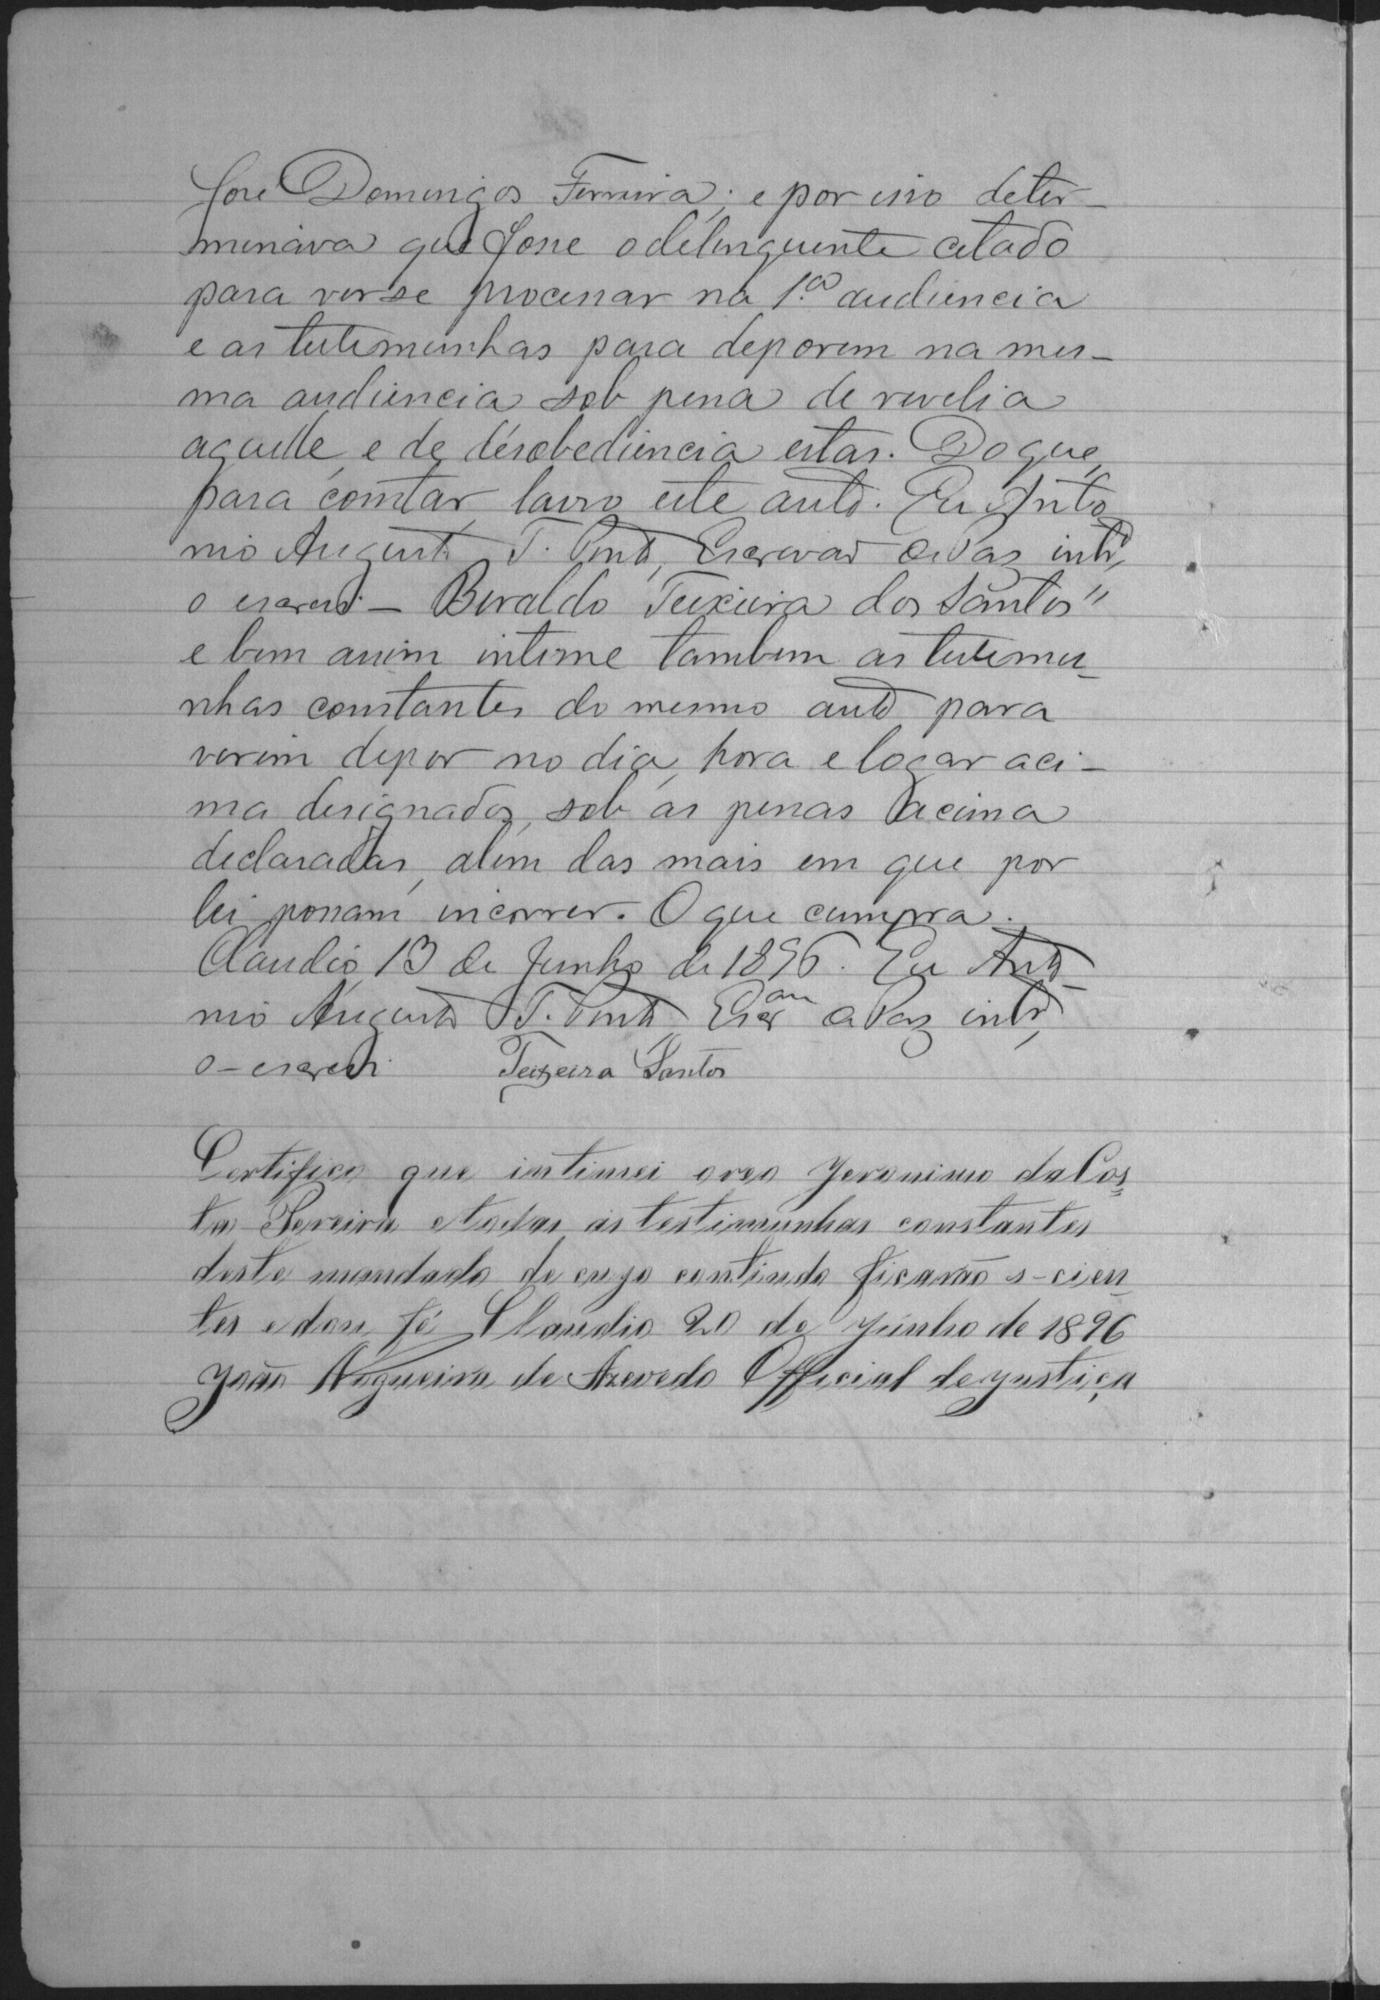 José Domingos Ferreira; e por isso deter-
minava que fosse o delinquente citado
para ver se processar na 1.ª audiencia
e as testemunhas para deporem na mes-
ma audiencia sob pena de revelia
aquelle, e de desobediencia estas. Do que,
para constar, lavro este auto. Eu Anto
nio Augusto T. Pinto, Escrivão de Paz intr.º,
o escrevi - Beraldo Teixeira dos Santos"
e bem assim intime tambem as testemu-
nhas constantes do mesmo auto para
virem depor no dia, hora e logar aci-
ma designados, sob as penas acima
declaradas, alem das mais em que por
lei possam incorrer. O que cumpra.
Claudio, 13 de Junho de 1896. Eu Anto-
nio Augusto T. Pinto, Escr.am de Paz intr.º,
o-escrevi Teixeira Santos
Certifico que intimei oreo Jeronimo da Cos=
ta Pereira etodas as testimunhas constantes
deste mandado de cujo contiudo ficarão s-cien
tes edou fé Claudio 20 de Junho de 1896
João Nogueira de Azevedo Official de justiça